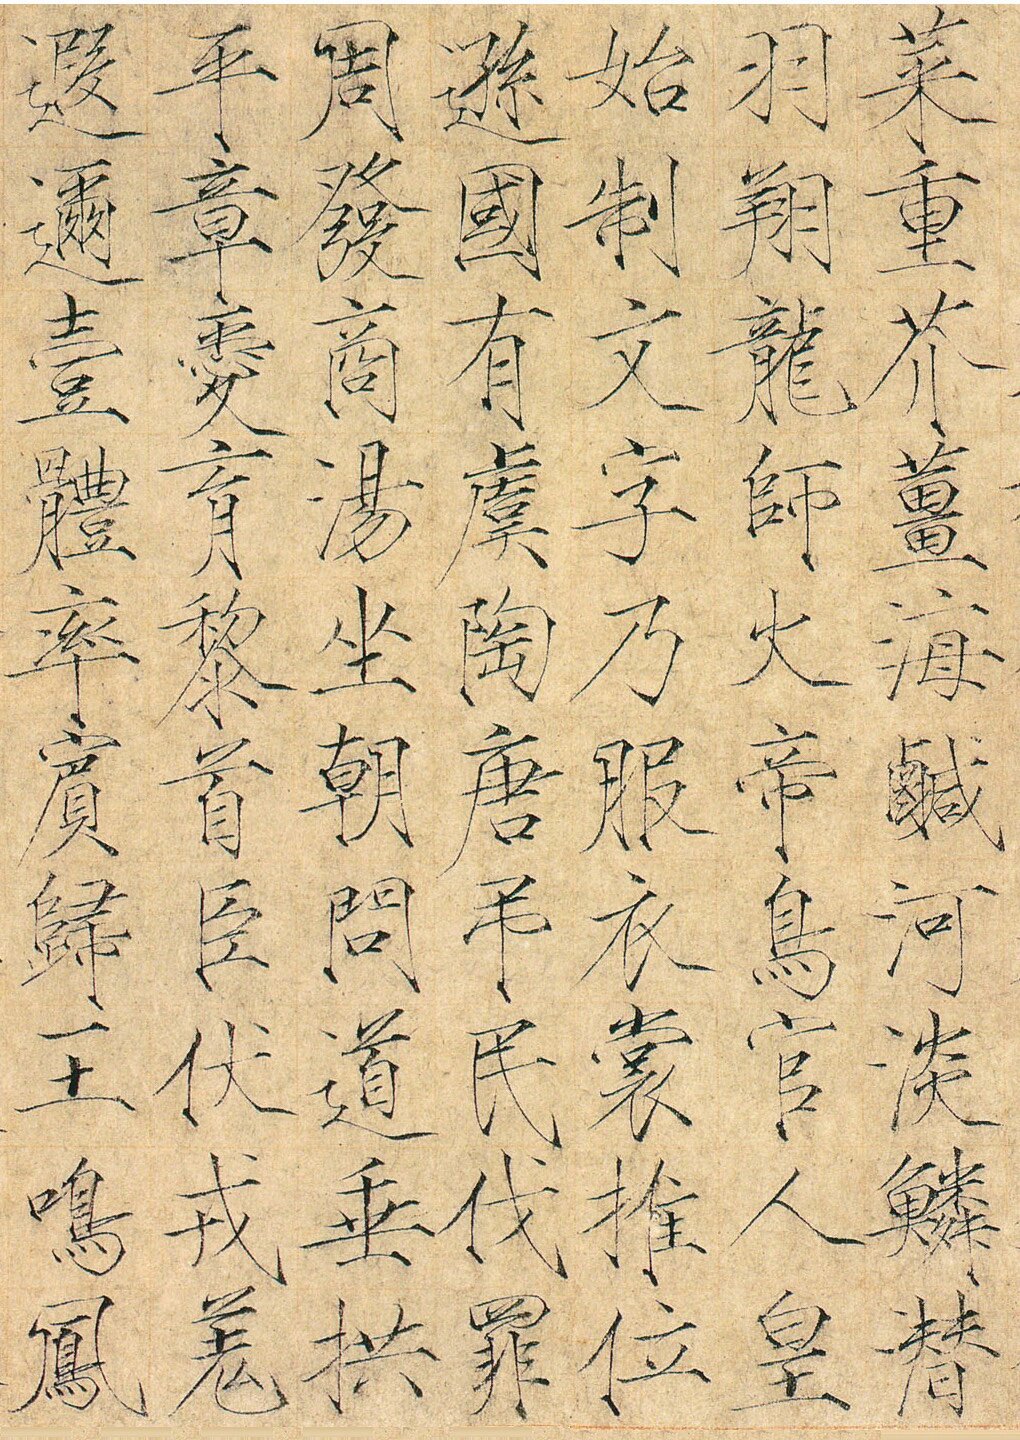 菜重芥薑海鹹河淡鱗潛
羽翔龍師火帝鳥官人皇
始制文字乃服衣裳推位
遜國有虞陶唐弔民伐罪
周發商湯坐朝問道垂拱
平章愛育黎首臣伏戎羌
遐邇壹體率賓歸王鳴鳳